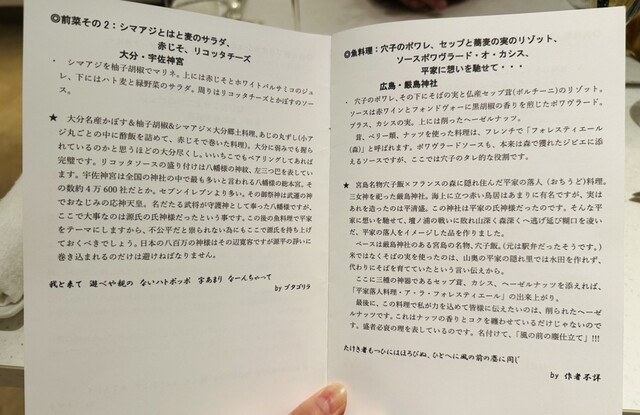 ◎前菜その2：シマアジとはと麦のサラダ、
赤じそ、リコッタチーズ
大分・宇佐神宮
・ シマアジを柚子胡椒でマリネ。上には赤じそとホワイトバルサミコのジュ
レ、下にはハト麦と緑野菜のサラダ。周りはリコッタチーズとかぼすのソー
ス。
★ 大分名産かぼす&柚子胡椒&シマアジ×大分郷土料理、あじの丸ずし(小ア
ジ丸ごとの中に酢飯を詰めて、赤じそで巻いた料理)。大分に弱みでも握ら
れているのかと思うほどの大分尽くし。いいちこでもペアリングしてあれば
完璧です。リコッタソースの盛り付けは八幡様の神紋、左三つ巴を表してい
ます。宇佐神宮は全国の神社の中で最も多いと言われる八幡様の総本宮。そ
の数約４万 600 社だとか。セブンイレブンより多い。その御祭神は武運の神
でおなじみの応神天皇。名だたる武将が守護神として奉った八幡様ですが、
ここで大事なのは源氏の氏神様だったという事です。この後の魚料理で平家
をテーマにしますから、不公平だと祟られない為にもここで源氏を持ち上げ
ておくべきでしょう。日本の八百万の神様はその辺寛容ですが源平の諍いに
巻き込まれるのだけは避けねばなりません。
我と来て 遊べや親の ないハトポッポ 字あまり なーんちゃって
by ブタゴリラ
◎魚料理：穴子のポワレ、セップと蕎麦の実のリゾット、
ソースポワヴラード・オ・カシス、
平家に想いを馳せて・・・
広島・厳島神社
・ 穴子のポワレ、その下にそばの実と仏産セップ茸(ポルチーニ)のリゾット。
ソースは赤ワインとフォンドヴォーに黒胡椒の香りを煎じたポワヴラード。
プラス、カシスの実。上には削ったヘーゼルナッツ。
茸、ベリー類、ナッツを使った料理は、フレンチで「フォレスティエール
(森)」と呼ばれます。ポワヴラードソースも、本来は森で獲れたジビエに添
えるソースですが、ここでは穴子のタレ的な役割です。
★ 宮島名物穴子飯×フランスの森に隠れ住んだ平家の落人（おちうど）料理。
三女神を祀った厳島神社。海上に立つ赤い鳥居はあまりに有名ですが、実は
あれを造ったのは平清盛。この神社は平家の氏神様だったのです。そんな平
家に想いを馳せて、壇ノ浦の戦いに敗れ山深く森深くへ逃げ延び糊口を凌い
だ、平家の落人をイメージした品を作りました。
ベースは厳島神社のある宮島の名物、穴子飯。（元は駅弁だったそうです。）
米ではなくそばの実を使ったのは、山奥の平家の隠れ里では水田を作れず、
代わりにそばを育てていたという言い伝えから。
ここに三種の神器であるセップ茸、カシス、ヘーゼルナッツを添えれば、
「平家落人料理・ア・ラ・フォレスティエール」の出来上がり。
最後に、この料理で私が力を込めて皆様に伝えたいのは、削られたヘーゼ
ルナッツです。これはナッツの香りとコクを纏わせているだけじゃないので
す。盛者必衰の理を表しているのです。名付けて、「風の前の塵仕立て」!!!
たけき者もつひにはほろびぬ、ひとへに風の前の塵に同じ
by 作者不詳